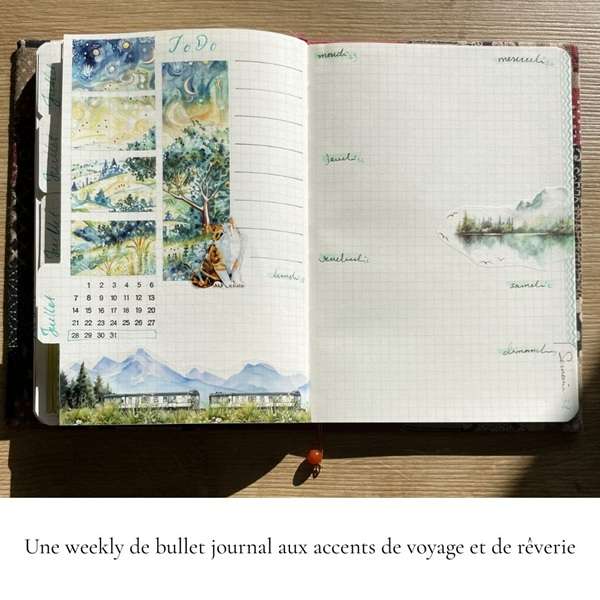 To Do
lundi
1 2 3 4 5 6
7 8 9 10 11 12 13
14 15 16 17 18 19 20
21 22 23 24 25 26 27
28 29 30 31
Juillet
mardi
mercredi
jeudi
vendredi
samedi
dimanche
Une weekly de bullet journal aux accents de voyage et de rêverie